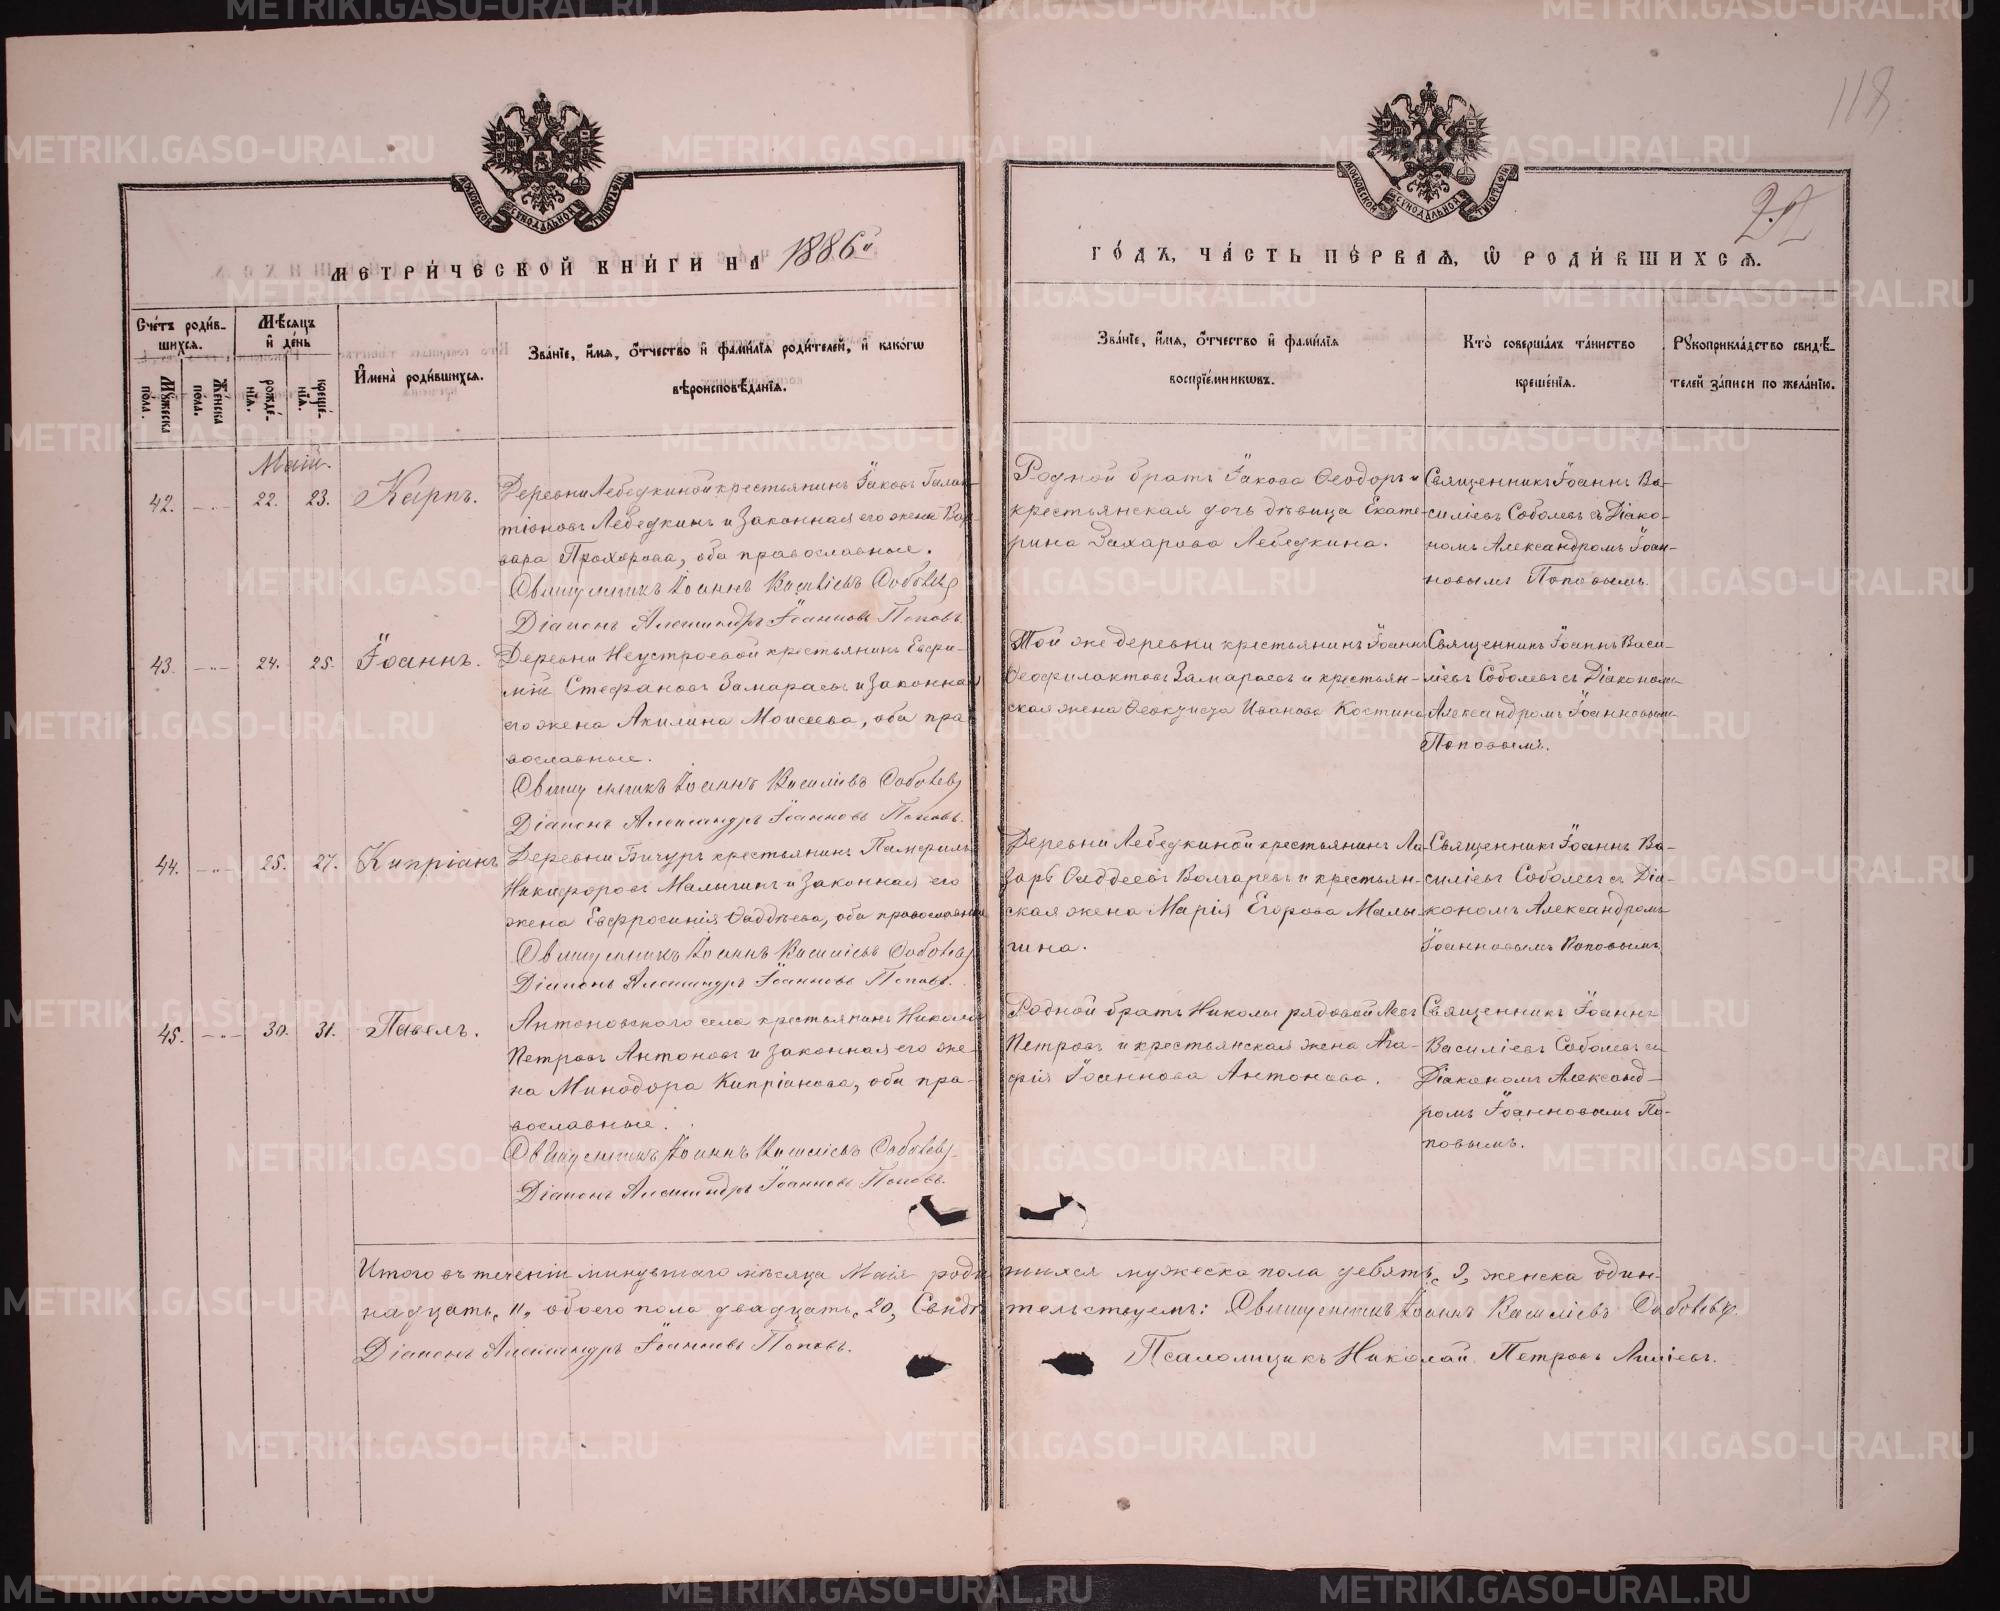 118
22
МОСКОВСКОЙ СѴНОДАЛЬНОЙ ТИПОГРАФІИ
МОСКОВСКОЙ СѴНОДАЛЬНОЙ ТИПОГРАФІИ
МЕТРИ́ЧЕСКОЙ КНИ́ГИ НА 1886й
ГО́ДЪ, ЧА́СТЬ ПЕ́РВАѦ, Ѽ РОДИ́ВШИХСѦ.
Сче́тъ роди́в-
шихся.
Мѣ́сяцъ
и҆ де́нь
Мꙋ́жеска по́ла.
Же́нска по́ла.
рожде́-нїѧ.
креще́-нїѧ.
И҆мена̀ роди́вшихсѧ.
Зва́нїе, и҆́мѧ, ѻ҆́тчество и҆ фами́лїѧ роди́телей, и҆ како́гѡ
вѣроисповѣ́данїѧ.
Зва́нїе, и҆́мѧ, ѻ҆́тчество и҆ фами́лїѧ
воспрїе́мникѡвъ.
Кто̀ соверша́лъ та́инство
креще́нїѧ.
Рꙋкоприкла́дство свидѣ́-
телей за́писи по жела́нїю.
Маій.
42. - - 22. 23. Карпъ.
Деревни Лебедкиной крестьянинъ Іаковъ Галак-
тіоновъ Лебедкинъ и законная его жена Вар-
вара Прохорова, оба православные.
Священникъ Іоаннъ Василіевъ Соболевъ
Діаконъ Александръ Іоанновъ Поповъ.
Родной братъ Іакова Ѳеодоръ и
крестьянская дочь дѣвица Екате-
рина Захарова Лебедкина.
Священникъ Іоаннъ Ва-
силіевъ Соболевъ съ Діако-
номъ Александромъ Іоан-
новымъ Поповымъ.
43. - - 24. 25. Іоаннъ.
Деревни Неустроевой крестьянинъ Евфи-
мій Стефановъ Замараевъ и законная
его жена Акилина Моисеева, оба пра-
вославные.
Священникъ Іоаннъ Василіевъ Соболевъ
Діаконъ Александръ Іоанновъ Поповъ.
Той же деревни крестьянинъ Іоаннъ
Ѳеофилактовъ Замараевъ и крестьян-
ская жена Ѳеоктиста Иванова Костина
Священникъ Іоаннъ Васи-
ліевъ Соболевъ съ Діакономъ
Александромъ Іоанновымъ
Поповымъ.
44. - - 25. 27. Кипріанъ
Деревни Бичуръ крестьянинъ Памфилъ
Никифоровъ Малыгинъ и законная его
жена Евфросинія Ѳаддѣева, оба православные
Священникъ Іоаннъ Василіевъ Соболевъ
Діаконъ Александръ Іоанновъ Поповъ.
Деревни Лебедкиной крестьянинъ Ла-
зарь Ѳаддеевъ Волгаревъ и крестьян-
ская жена Марія Егорова Малы-
гина.
Священникъ Іоаннъ Ва-
силіевъ Соболевъ съ Діа-
кономъ Александромъ
Іоанновымъ Поповымъ
45. - - 30. 31. Павелъ.
Антоновского села крестьянинъ Никола
Петровъ Антоновъ и законная его же-
на Минодора Кипріанова, оба пра-
вославные.
Священникъ Іоаннъ Василіевъ Соболевъ
Діаконъ Александръ Іоанновъ Поповъ.
Родной братъ Николы рядовой Левъ
Петровъ и крестьянская жена Ага-
фія Іоаннова Антонова.
Священникъ Іоаннъ
Василіевъ Соболевъ съ
Діакономъ Александ-
ромъ Іоанновымъ По-
повымъ.
Итого въ теченіи минувшаго мѣсяца Маія родившихся мужеска пола девять, 9, женска один-
надцать, 11, обоего пола двадцать, 20, Свидѣтельствуемъ: Священникъ Іоаннъ Василіевъ Соболевъ.
Діаконъ Александръ Іоанновъ Поповъ. Псаломщикъ Николай Петровъ
METRIKI.GASO-URAL.RU